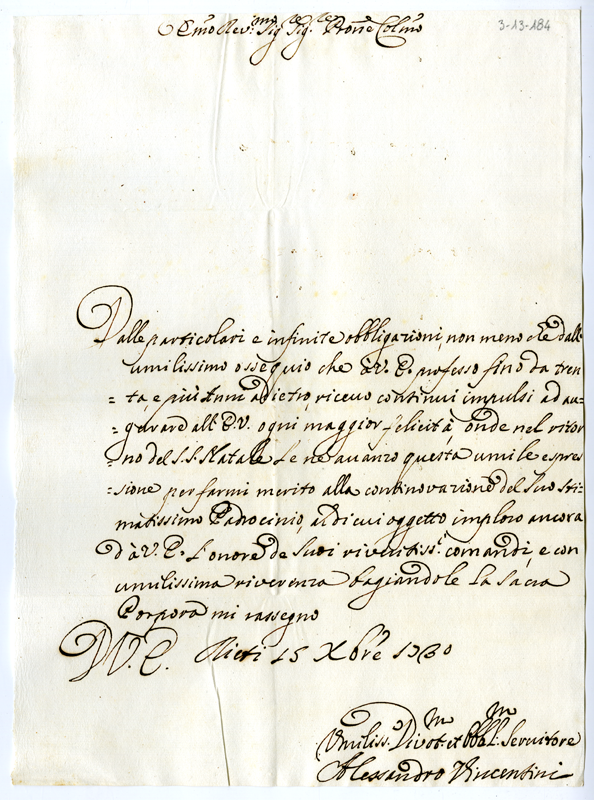 3-13-184
Emo Rev.mo Sig.re Sig.re Prone Colmo
Dalle particolari e infinite obbligazioni, non meno che dall'
umilissimo ossequio che à V. E. professo fino da tren
= ta, e più anni adietro, ricevo continui impulsi ad au=
= gurare all' E. V. ogni maggior felicità, onde nel ritor
no del S. S. Natale Le ne avanzo questa umile espres
= sione per farmi merito alla continovazione del Suo sti=
matissimo Padrocinio, al di cui oggetto imploro ancora
d'à V. E. L'onore de Suoi riveritiss.i comandi, e con
umilissima riverenza bagiandole La Sacra
Porpora mi rassegno
D. V. E. Rieti 15 Xbre
Umiliss. Divot.mo et Obbl.mo Servitore
Alessandro Vincentini